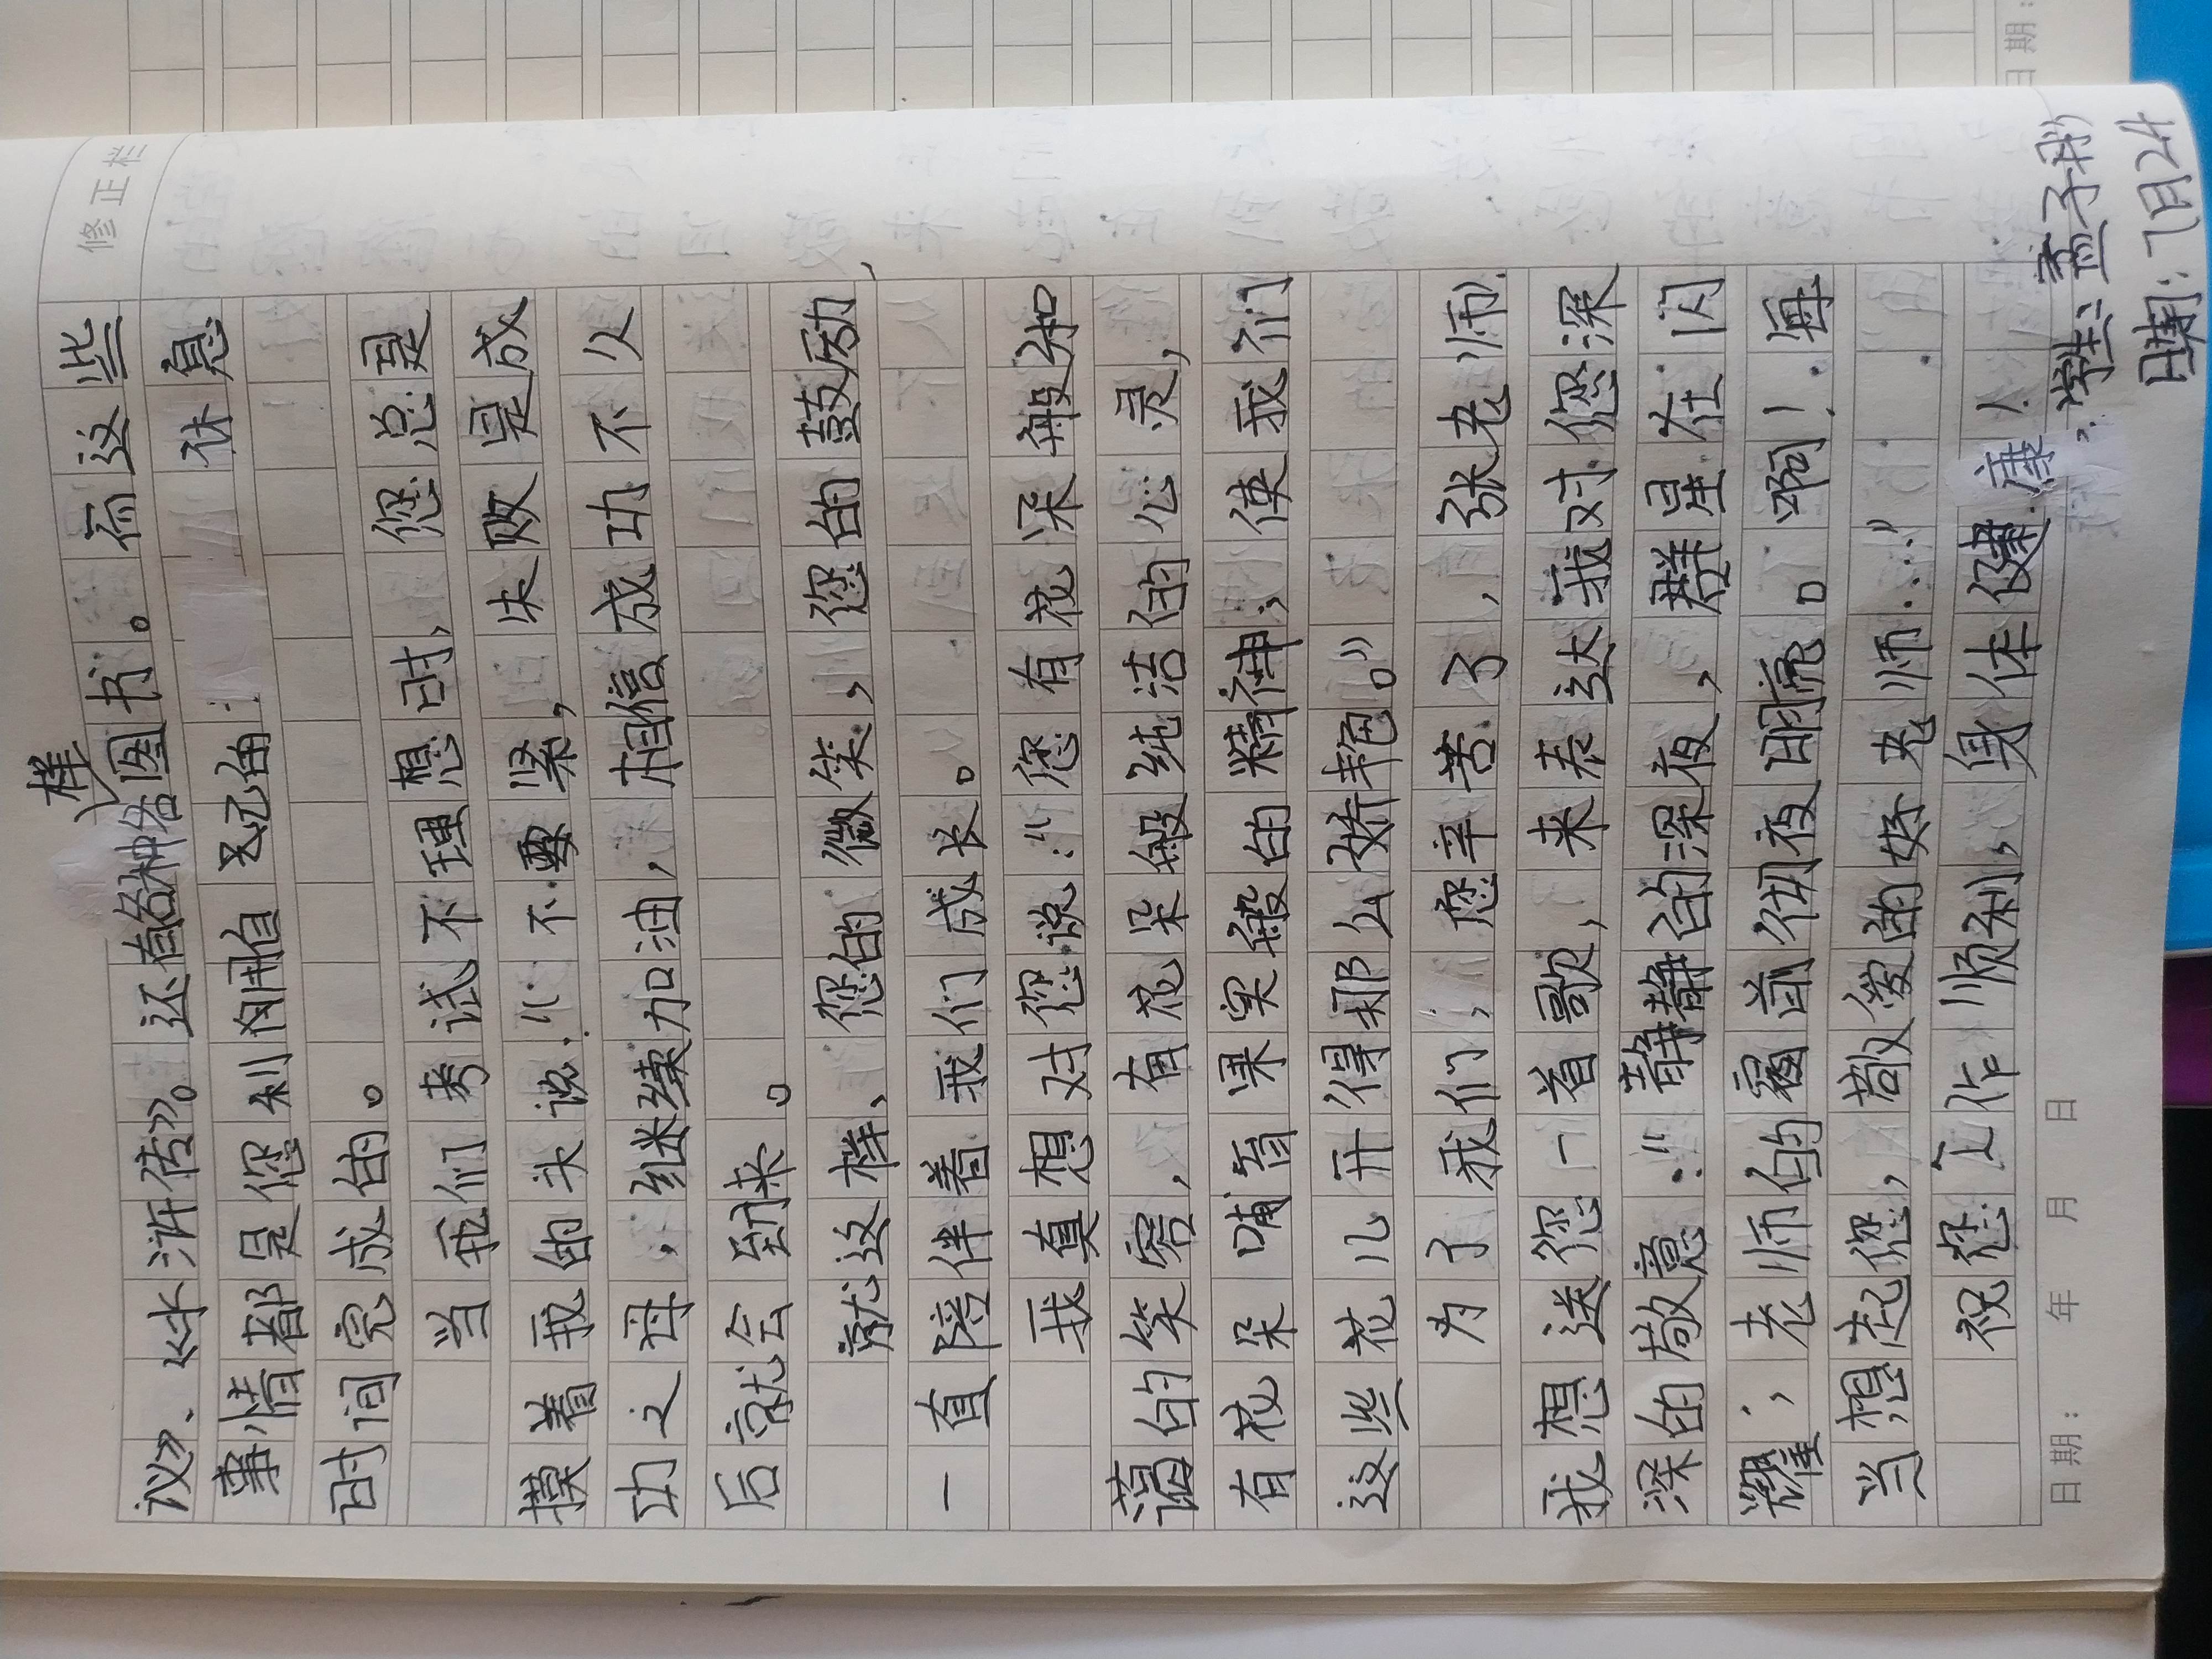 修正栏
样
议》、《水浒传》。还有各种各图书。而这些
事情都是您利用自己的休息
时间完成的。
当我们考试不理想时，您总是
摸着我的头说：“不要紧，失败是成
功之母，继续加油，相信成功不久
后就会到来。
就这样，您的微笑，您的鼓励
一直陪伴着我们成长。
我真想对您说：“您有花朵般和
蔼的笑容，有花朵般纯洁的心灵，
有花朵哺育果实般的精神，使我们
这些花儿开得那么娇艳。”
为了我们，您辛苦了，张老师.
我想送您一首歌，来表达我对您深
深的敬意：“静静的深夜，群星在闪
耀，老师的窗前彻夜明亮。啊！每
当想起您，敬爱的好老师…”
祝您工作顺利，身体健康
学生：孟子彤
日期：7月24
日期： 年 月 日
日期：